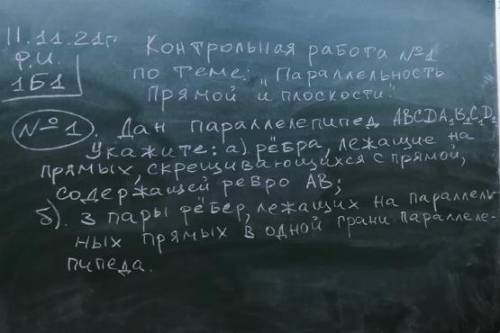 11.11.21г.
Ф.И.
1Б1
Контрольная работа №1
по теме: "Параллельность
прямой и плоскости".
№1. Дан параллелепипед ABCDA₁B₁C₁D₁
Укажите: а) рёбра, лежащие на
прямых, скрещивающихся с прямой,
содержащей ребро AB;
б). 3 пары рёбер, лежащих на параллель
ных прямых в одной грани параллеле-
пипеда.